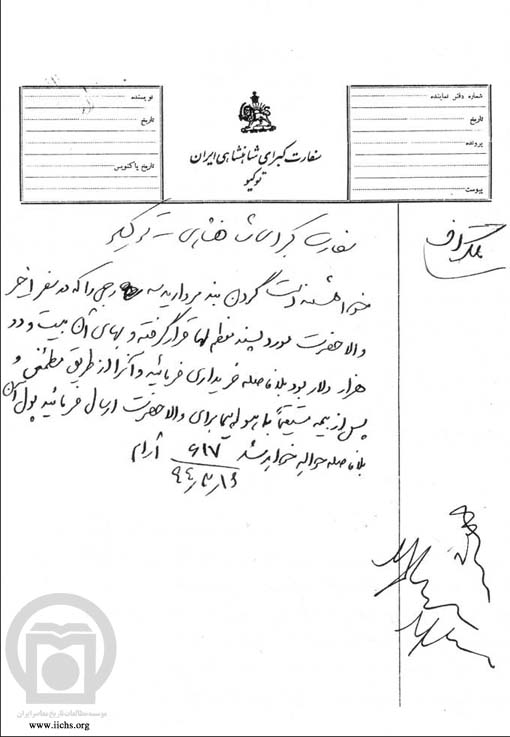 شماره دفتر نماینده
تاریخ
پرونده
پیوست
سفارت کبرای شاهنشاهی ایران
توکیو
نویسنده
تاریخ
تاریخ پاکنویس
تلگراف
سفارت کبرای شاهنشاهی – توکیو
خواهشمند است گردن بند مروارید سه رجی را که در سفر اخیر
والاحضرت مورد پسند معظم لها قرار گرفته و بهای آن بیست و دو
هزار دلار بود بلافاصله خریداری فرمائید و آنرا از طریق مطمئنی و
پس از بیمه مستقیماً با هواپیما برای والاحضرت ارسال فرمائید پول آن
بلافاصله حواله خواهد شد ۶۱۷ آرام
موسسه مطالعات تاریخ معاصر ایران
www.iichs.org